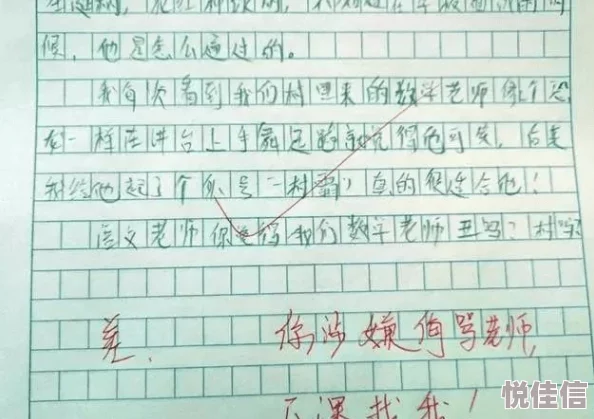 候，他是怎么通过的。
我每次看到我们村里来的数学老师像个恐
龙一样在讲台上手舞足蹈就觉得他可笑，后来
我给他起了个外号“村霸”真的很适合他！
语文老师你觉得我们数学老师丑吗？村
差。 你涉嫌侮骂老师，
下课找我！
悦佳信